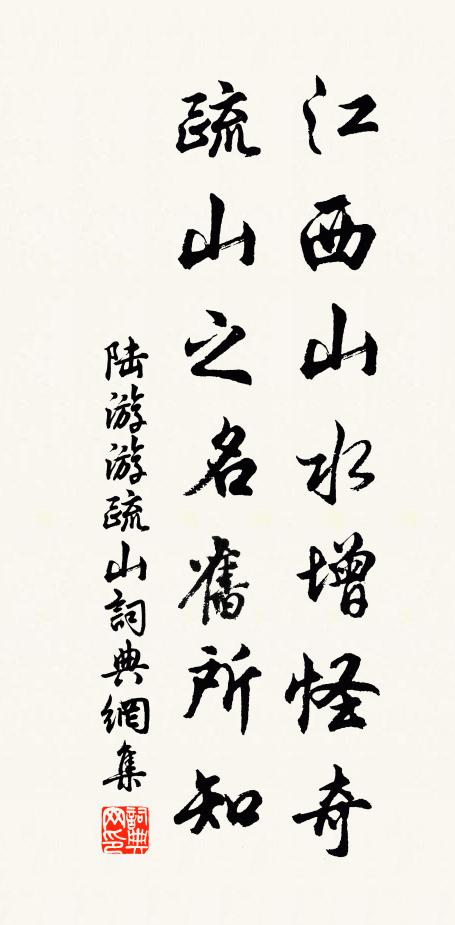 江西山水增怪奇
疏山之名舊所知
陆游游疏山詞典網集
詞典网印